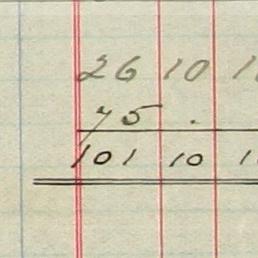 26 10
75 .
101 10